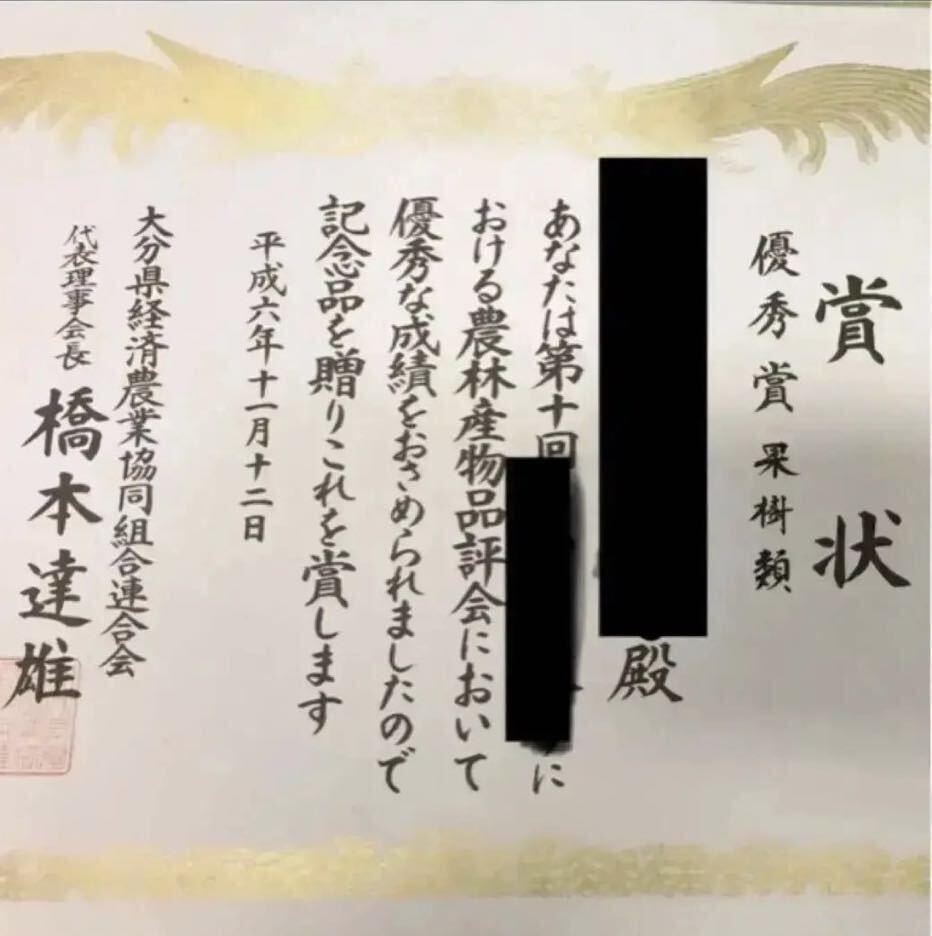 賞状
優秀賞果樹類
殿
あなたは第十回
に
おける農林産物品評会において
優秀な成績をおさめられましたので
記念品を贈りこれを賞します
平成六年十一月十二日
大分県経済農業協同組合連合会
代表理事会長 橋本達雄